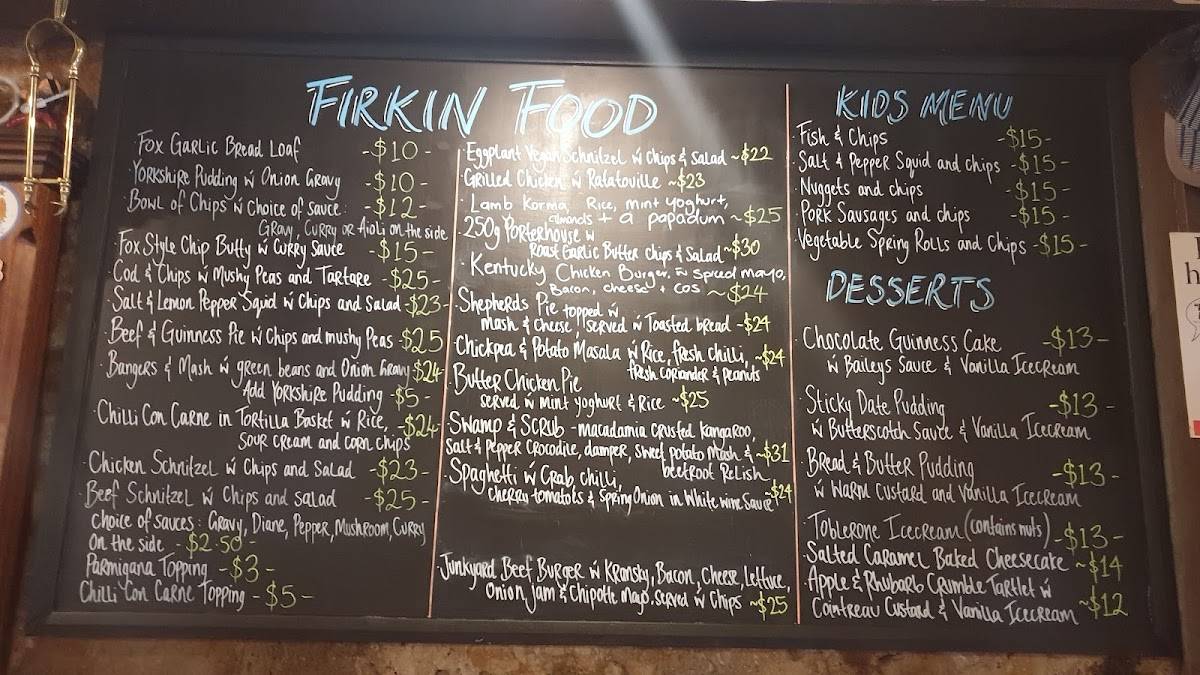 FIRKIN FOOD
Fox Garlic Bread Loaf -$10-
Yorkshire Pudding w Onion Gravy -$10-
Bowl of Chips w Choice of sauce: -$12-
Gravy, Curry or Aioli on the side
Fox Style Chip Butty w Curry Sauce -$15-
Cod & Chips w Mushy Peas and Tartare -$25-
Salt & Lemon Pepper Squid w Chips and Salad -$23-
Beef & Guinness Pie w Chips and mushy Peas -$25
Bangers & Mash w green beans and Onion Gravy $24
Add Yorkshire Pudding -$5-
Chilli Con Carne in Tortilla Basket w Rice, -$24-
Sour cream and corn chips
Chicken Schnitzel w Chips and Salad -$23-
Beef Schnitzel w Chips and salad -$25-
choice of sauces: Gravy, Diane, Pepper, Mushroom, Curry
On the side -$2.50-
Parmigana Topping -$3-
Chilli Con Carne Topping -$5-
Eggplant Vegan Schnitzel w Chips & Salad ~$22
Grilled Chicken w Ratatouille ~$23
Lamb Korma, Rice, mint yoghurt,
almonds + a papadum ~$25
250g Porterhouse w
Roast Garlic Butter Chips & Salad ~$30
Kentucky Chicken Burger, w spiced mayo,
Bacon, cheese + cos ~$24
Shepherds Pie topped w
mash & cheese, served w Toasted bread -$24
Chickpea & Potato Masala w Rice, fresh chilli, ~$24
fresh coriander & peanuts
Butter Chicken Pie
served w mint yoghurt & Rice ~$25
Swamp & Scrub - macadamia crusted kangaroo,
Salt & Pepper Crocodile, damper, sweet potato mash & ~$31
beetroot Relish
Spaghetti w Crab, chilli,
cherry tomatoes & Spring Onion in White wine Sauce ~$24
Junkyard Beef Burger w Kransky, Bacon, Cheese, Lettuce,
Onion Jam & Chipotle mayo. served w Chips ~$25
KIDS MENU
Fish & Chips -$15-
Salt & Pepper Squid and chips -$15-
Nuggets and chips -$15-
Pork Sausages and chips -$15-
Vegetable Spring Rolls and Chips -$15-
DESSERTS
Chocolate Guinness Cake -$13-
w Baileys Sauce & Vanilla Icecream
Sticky Date Pudding -$13-
w Butterscotch Sauce & Vanilla Icecream
Bread & Butter Pudding -$13-
w Warm Custard and Vanilla Icecream
Toblerone Icecream (contains nuts) -$13-
Salted Caramel Baked Cheesecake ~$14
Apple & Rhubarb Crumble Tartlet w
Cointreau Custard & Vanilla Icecream ~$12